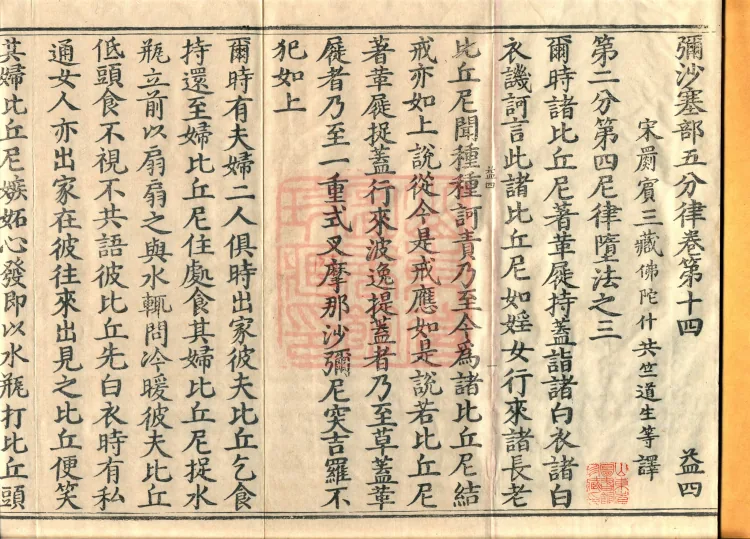 彌沙塞部五分律卷第十四 益四
宋罽賓三藏佛陀什共竺道生等譯
第二分第四尼律墮法之三
爾時諸比丘尼著革屣持蓋詣諸白衣諸白
衣譏訶言此諸比丘尼如婬女行來諸長老
比丘尼聞種種訶責乃至今為諸比丘尼結
益四
戒亦如上說從今是戒應如是說若比丘尼
著革屣捉蓋行來波逸提蓋者乃至草蓋革
屣者乃至一重式叉摩那沙彌尼突吉羅不
犯如上
爾時有夫婦二人俱時出家彼夫比丘乞食
持還至婦比丘尼住處食其婦比丘尼捉水
瓶立前以扇扇之與水輒問冷暖彼夫比丘
低頭食不視不共語彼比丘先白衣時有私
通女人亦出家在彼往來出見之比丘便笑
其婦比丘尼嫉妬心發即以水瓶打比丘頭